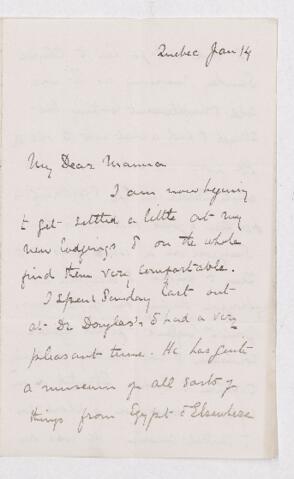 Quebec Jan 14
My Dear Mamma
I am now begining
to get settled a little at my
new lodgings & on the whole
find them very comfortable.
I spent Sunday last out
at Dr Douglas's & had a very
pleasant time. He has quite
a museum of all sorts of
things from Egypt & Elsewhere